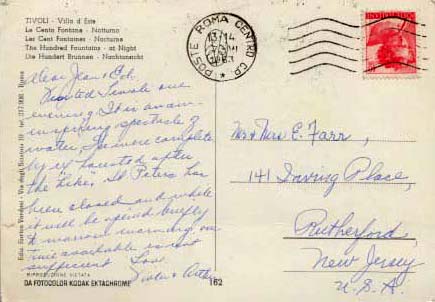 TIVOLI - Villa d'Este
Le Cento Fontane - Notturno
Les Cent Fontaines - Nocturne
The Hundred Fountains - at Night
Die Hundert Brunnen - Nachtansicht
POSTE ROMA CENTRO C.P.
Dear Jean & Bob.
Visited Tivoli one
evening. It is an awe-
inspiring spectacle of
water. I'm more completely
exhausted after
the "hike". St Peters has
been closed and while
it will be opened briefly
tomorrow morning, our
time available is not
sufficient Love
Mr & Mrs E. Farr,
141 Irving Place,
Rutherford,
New Jersey
U.S.A.
Ediz. Enrico Verdesi - Via degli
RIPRODUZIONE VIETATA
DA FOTOCOLOR KODAK EKTACHROME
162